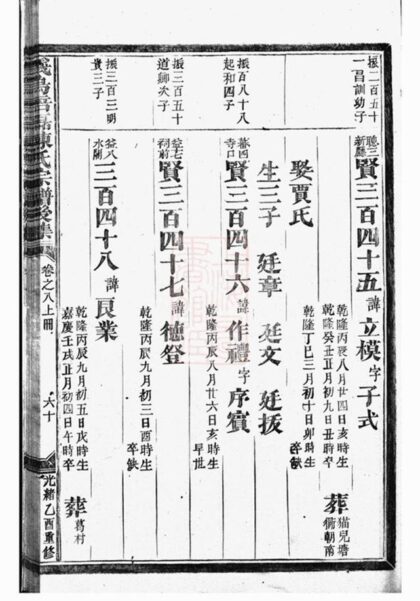 振二百五十
一昌訓幼子
聽三
新廳
賢三百四十五 諱立模 字子式
乾隆丙辰八月廿四日亥時生
乾隆癸丑正月初九日丑時卒
葬
猫兒塘
衕朝南
娶賈氏
乾隆丁巳三月初十日卯時生
卒缺
生三子 廷章 廷文 廷拔
振百八十八
起和四子
暮四
寺口
賢三百四十六 諱作禮 字序賓
乾隆丙辰八月廿六日亥時生
早世
振三百五十
道卿次子
益七
祠前
賢三百四十七 諱德登
乾隆丙辰九月初三日酉時生
卒缺
振三百三明
貴三子
益八
水閣
三百四十八 諱良業
乾隆丙辰九月初五日戌時生
嘉慶壬戌正月初四日午時卒
葬
葛村
陳氏宗譜後集
卷之八上冊
六十
光緒乙酉重修